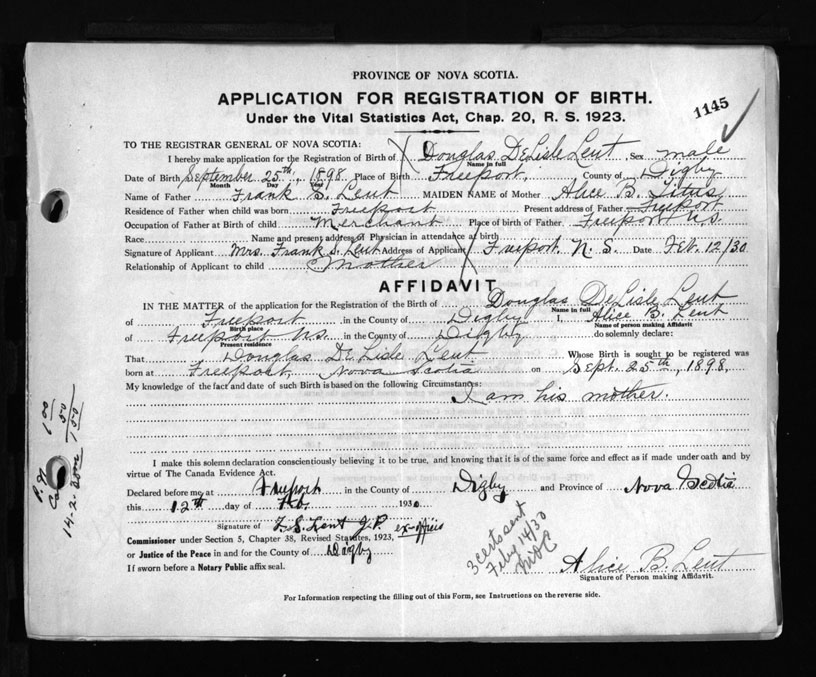 PROVINCE OF NOVA SCOTIA.
APPLICATION FOR REGISTRATION OF BIRTH.
1145
Under the Vital Statistics Act, Chap. 20, R. S. 1923.
TO THE REGISTRAR GENERAL OF NOVA SCOTIA:
I hereby make application for the Registration of Birth of Douglas DeLisle Lent Sex male
Name in full
Date of Birth September 25th, 1898 Place of Birth Freeport. County of Digby
Month Day Year
Name of Father Frank S. Lent MAIDEN NAME of Mother Alice B. Titus
Residence of Father when child was born Freeport Present address of Father Freeport
Occupation of Father at Birth of child Merchant Place of birth of Father Freeport N.S.
Race Name and present address of Physician in attendance at birth
Signature of Applicant Mrs. Frank S. Lent Address of Applicant Freeport. N. S. Date Feb. 12/30
Relationship of Applicant to child Mother
AFFIDAVIT
IN THE MATTER of the application for the Registration of the Birth of Douglas DeLisle Lent
Name in full
of Freeport, in the County of Digby I, Alice B. Lent
Birth place Name of person making Affidavit
of Freeport N.S. in the County of Digby do solemnly declare:
Present residence
That Douglas DeLisle Lent Whose Birth is sought to be registered was
born at Freeport Nova Scotia on Sept. 25th, 1898,
My knowledge of the fact and date of such Birth is based on the following Circumstances:
I am his mother.
I make this solemn declaration conscientiously believing it to be true, and knowing that it is of the same force and effect as if made under oath and by
virtue of The Canada Evidence Act.
Declared before me, at Freeport in the County of Digby and Province of Nova Scotia
this 12th day of Feb. 1930
Signature of F.S. Lent J.P. ex-officio
Commissioner under Section 5, Chapter 38, Revised Statutes, 1923,
or Justice of the Peace in and for the County of Digby
If sworn before a Notary Public affix seal.
3 certs sent
Feby 14/30
Alice B. Lent
Signature of Person making Affidavit.
For Information respecting the filling out of this Form, see Instructions on the reverse side.
P.N. 1 00
50
14.2. 1 50